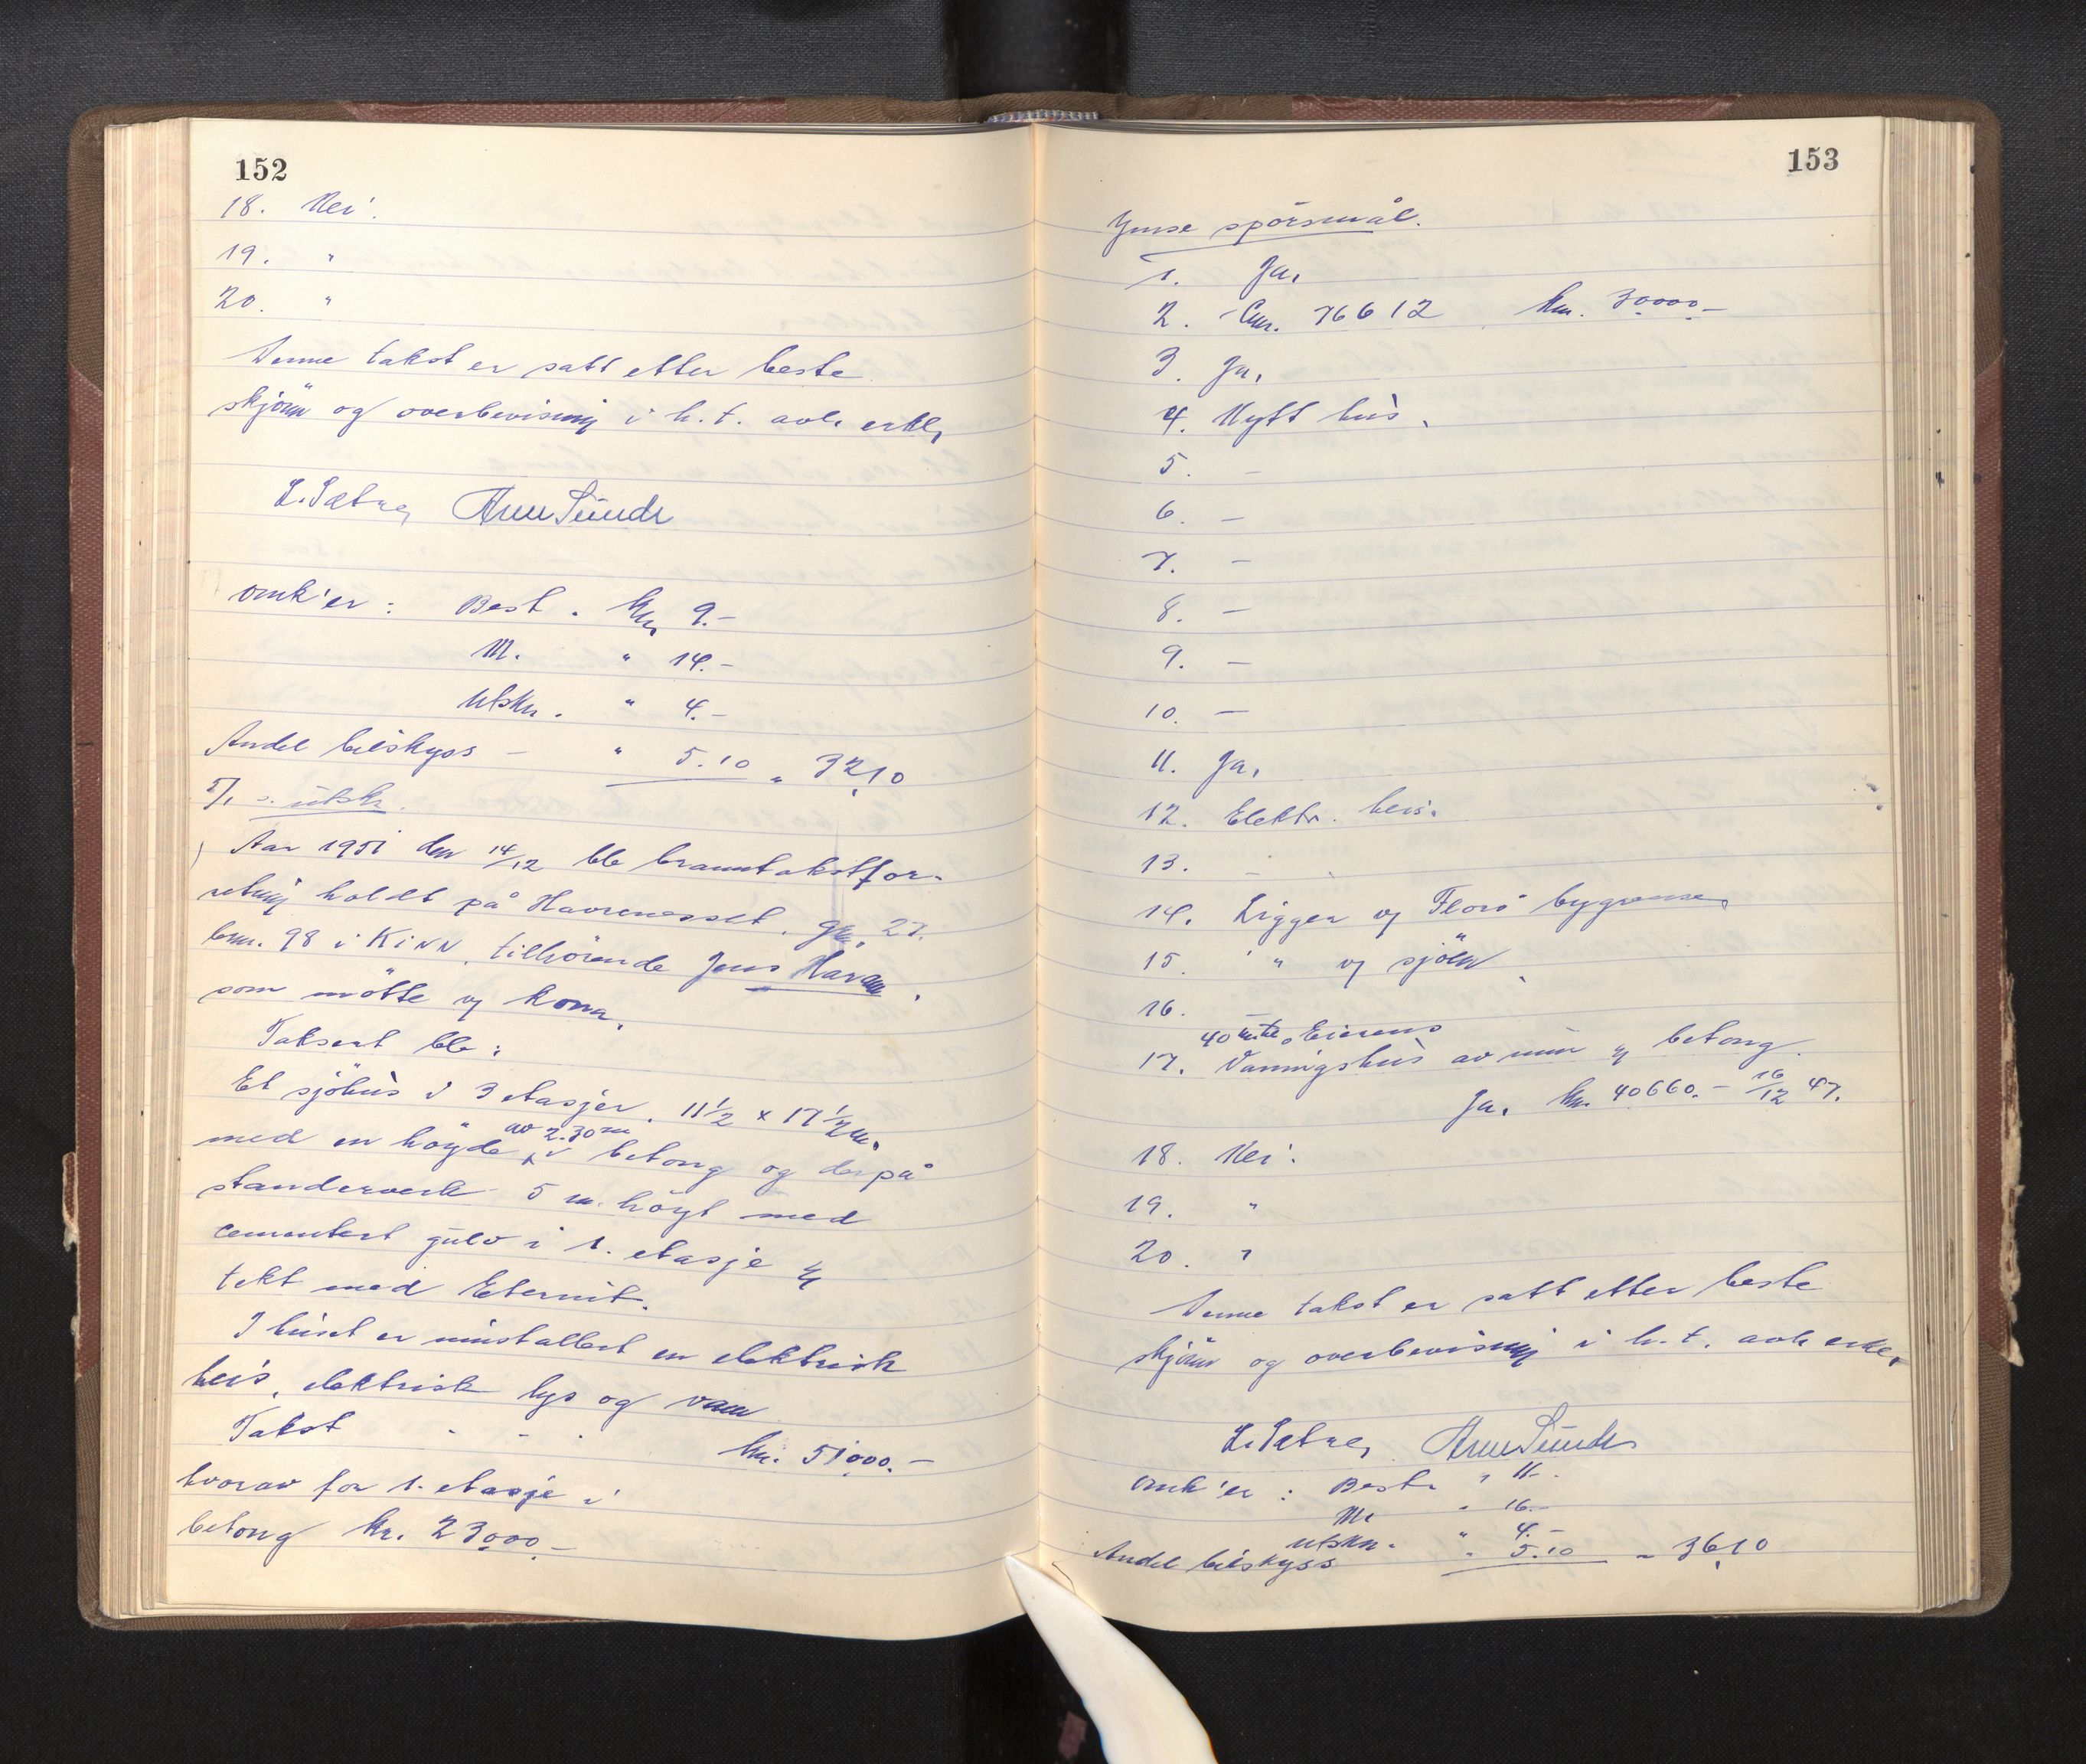 152
18. Nei.
19. "
20. "
Denne takst er satt etter beste
skjönn og overbevisning i h.t. avl. erkl.
L. Sætre, Arne Sunde
Omk'er: Best. kr. 9.-
M. " 14.-
Utskr. " 4.-
Andel bilskyss - " 5.10 " 32,10
5/1 s. utskr.
Aar 1951 den 14/12 ble branntakstfor-
retning holdt på Havrenesset, gnr. 27.
bnr. 98 i Kinn, tilhörende Jens Havan,
som mötte og kona.
Taksert ble:
Et sjöhus i 3 etasjer. 11½ x 17½ m.
med en höyde av 2.30 m i betong og derpå
standerverk 5 m. höyt med
cementert gulv i 1. etasje og
tekt med Eternit.
I huset er innstallert en elektrisk
heis, elektrisk lys og vann
Takst - - - kr. 51000.-
hvorav for 1. etasje i
betong kr. 23000.-
153
Ymse spörsmål.
1. Ja.
2. Lnr. 76612 kr. 30000.-
3. Ja.
4. Nytt hus.
5. -
6. -
7. -
8. -
9. -
10. -
11. Ja.
12. Elektr. heis.
13. -
14. Ligger v/ Florö bygrense,
15. " v/ sjöen
16. -
40 mtr. Eierens
17. Vaningshus av mur og betong.
Ja. kr. 40660.- 16/12 47.
18. Nei.
19. "
20. "
Denne takst er satt etter beste
skjönn og overbevisning i h.t. avl. erkl.
L. Sætre, Arne Sunde
Omk'er: Best. " 11.-
M. " 16.-
Utskr. " 4.-
Andel bilskyss " 5.10 " 36,10